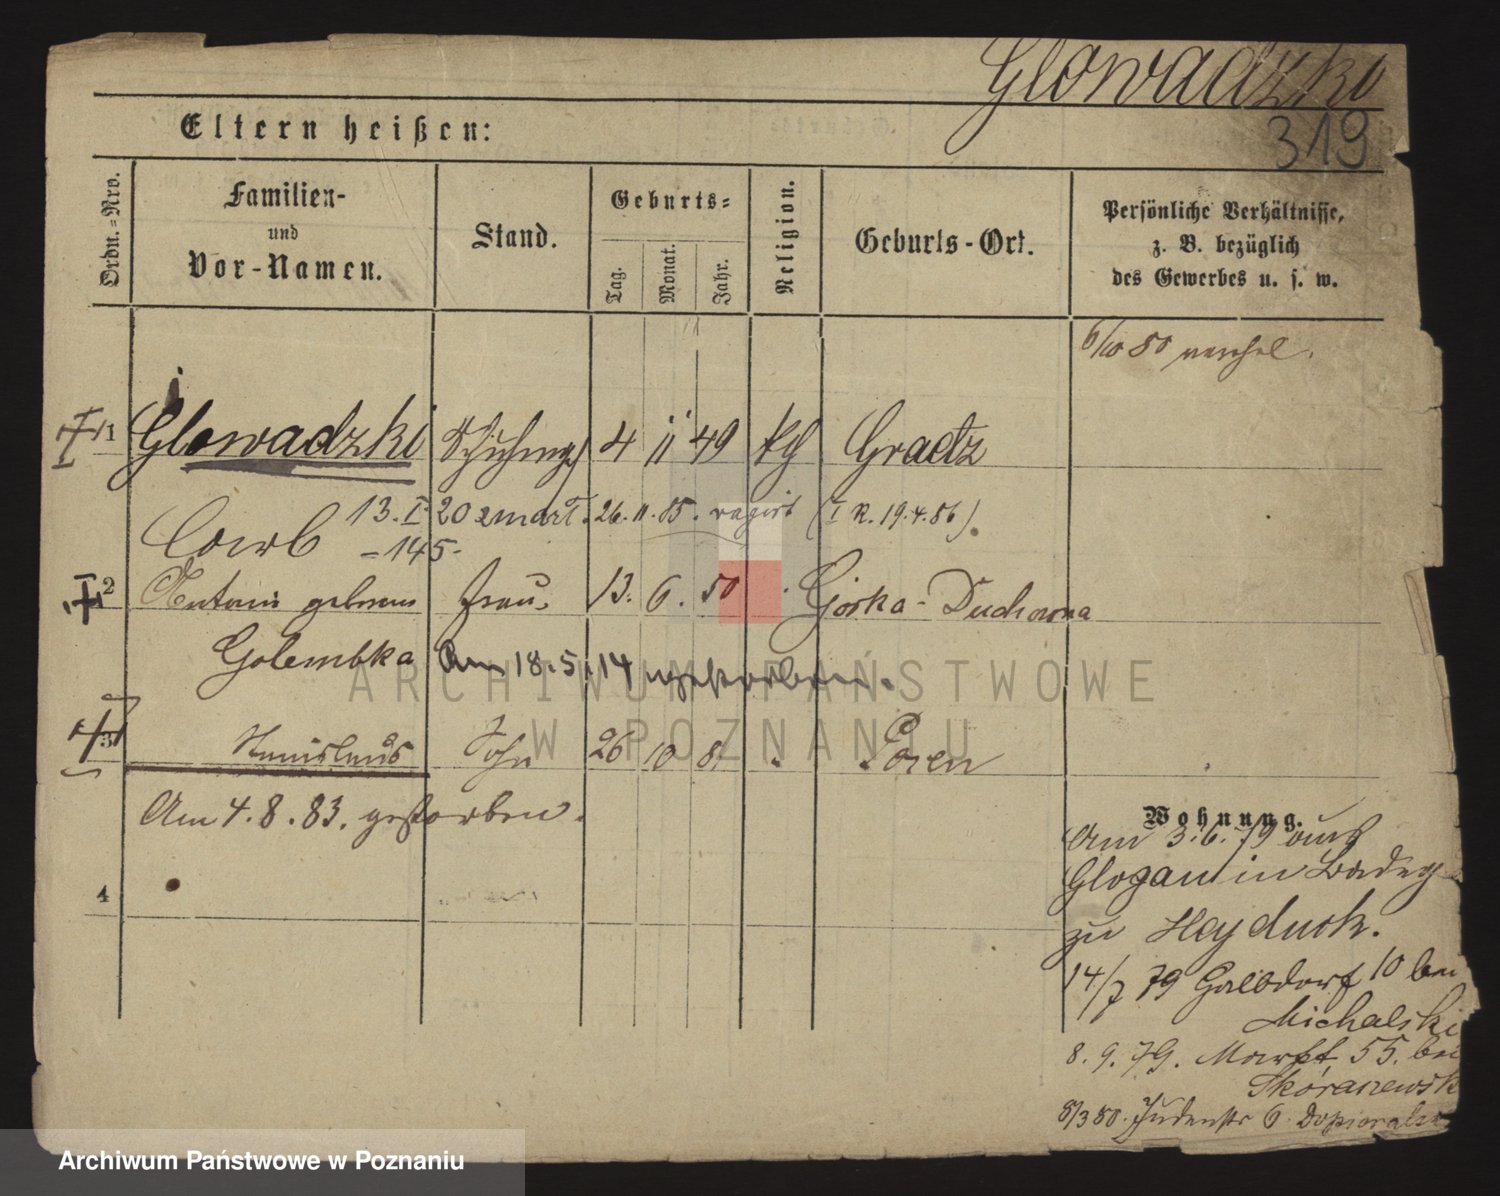 Glowadzki
319
Eltern heißen:
Ordn.-Nro.
Familien-
und
Vor-Namen.
Stand.
Geburts-
Tag.
Monat.
Jahr.
Religion.
Geburts-Ort.
Persönliche Verhältnisse,
z. B. bezüglich
des Gewerbes u. s. w.
6/10 80
1 Glowadzki 4 11 49 kth Graetz
13. I 20 26. 11. 85. (I R. 19.4.86).
-145-
2 Antonie geborene Frau. 13. 6. 50 Górka-Duchowna
Golembka Am 18.5.14 gestorben.
3 Stanislaus Sohn 26 10 8 Posen
Am 4.8.83. gestorben.
4
Wohnung.
Am 3.6.79 aus
Glogau in
zu Heyduck.
14/7 79 Halbdorf 10 bei
Michalski
8.9.79. Markt 55. bei
Skóraszewsk
8/3 80. Judenstr 6
ARCHIWUM PAŃSTWOWE
W POZNANIU
Archiwum Państwowe w Poznaniu